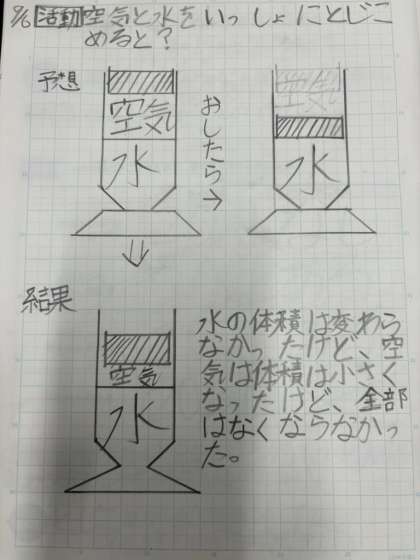 9/6 活動 空気と水をいっしょにとじこ
めると？
予想
空気
水
おしたら→
空気
水
結果
空気
水
水の体積は変わら
なかったけど、空
気は体積は小さく
なったけど、全部
はなくならなかっ
た。